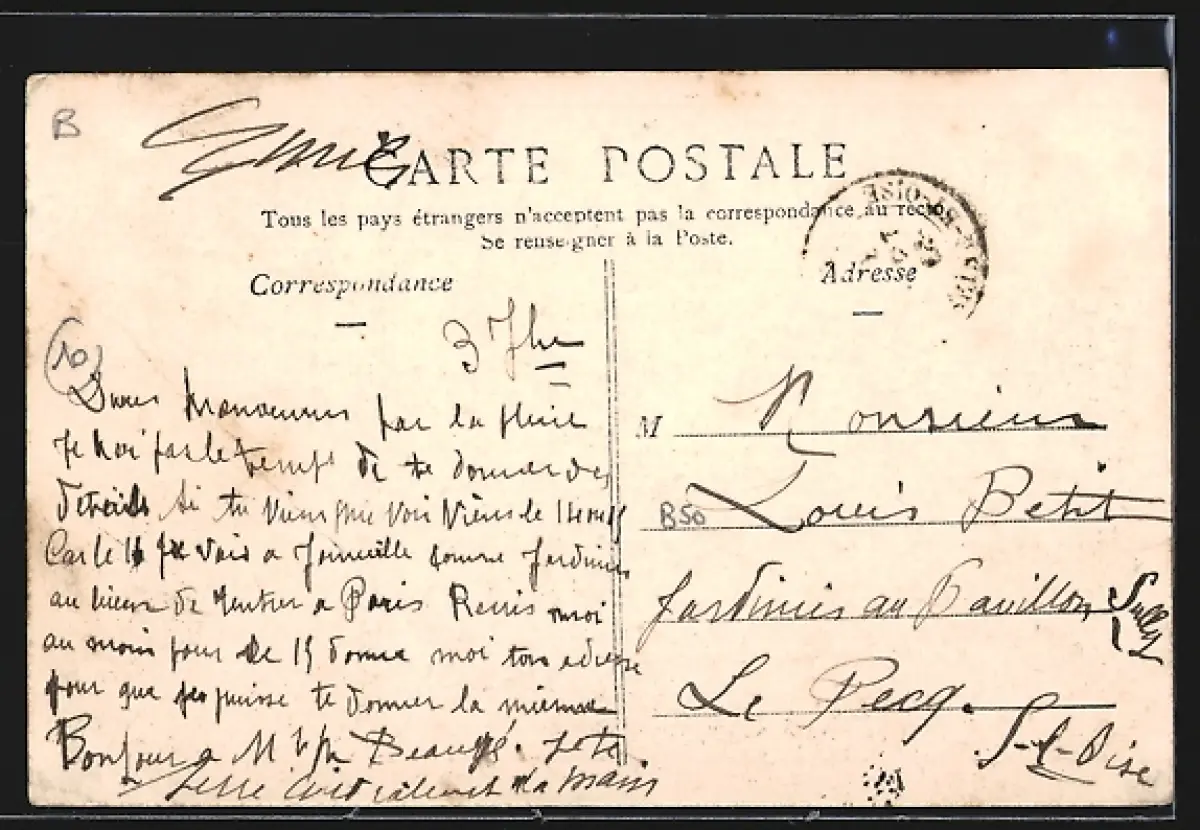 B
CARTE POSTALE
Tous les pays étrangers n'acceptent pas la correspondance au recto
Se renseigner à la Poste.
Correspondance
Adresse
3 7bre
(10)
par la pluie
Je n'ai pas le temps de te donner des
details si tu viens me voir viens le 14 ou 15
Car le 16 je vais a Joinville comme Jardinier
au lieu de rentrer a Paris
moi
au moins pour le 15 donne moi ton adresse
pour que je puisse te donner la mienne
Bonjour a Mr & Me
serre cordialement la main
M Monsieur
B50 Louis Petit
Jardinier au Pavillon Sully
Le Pecq.
S-&-Oise
SEINE-ET-OISE